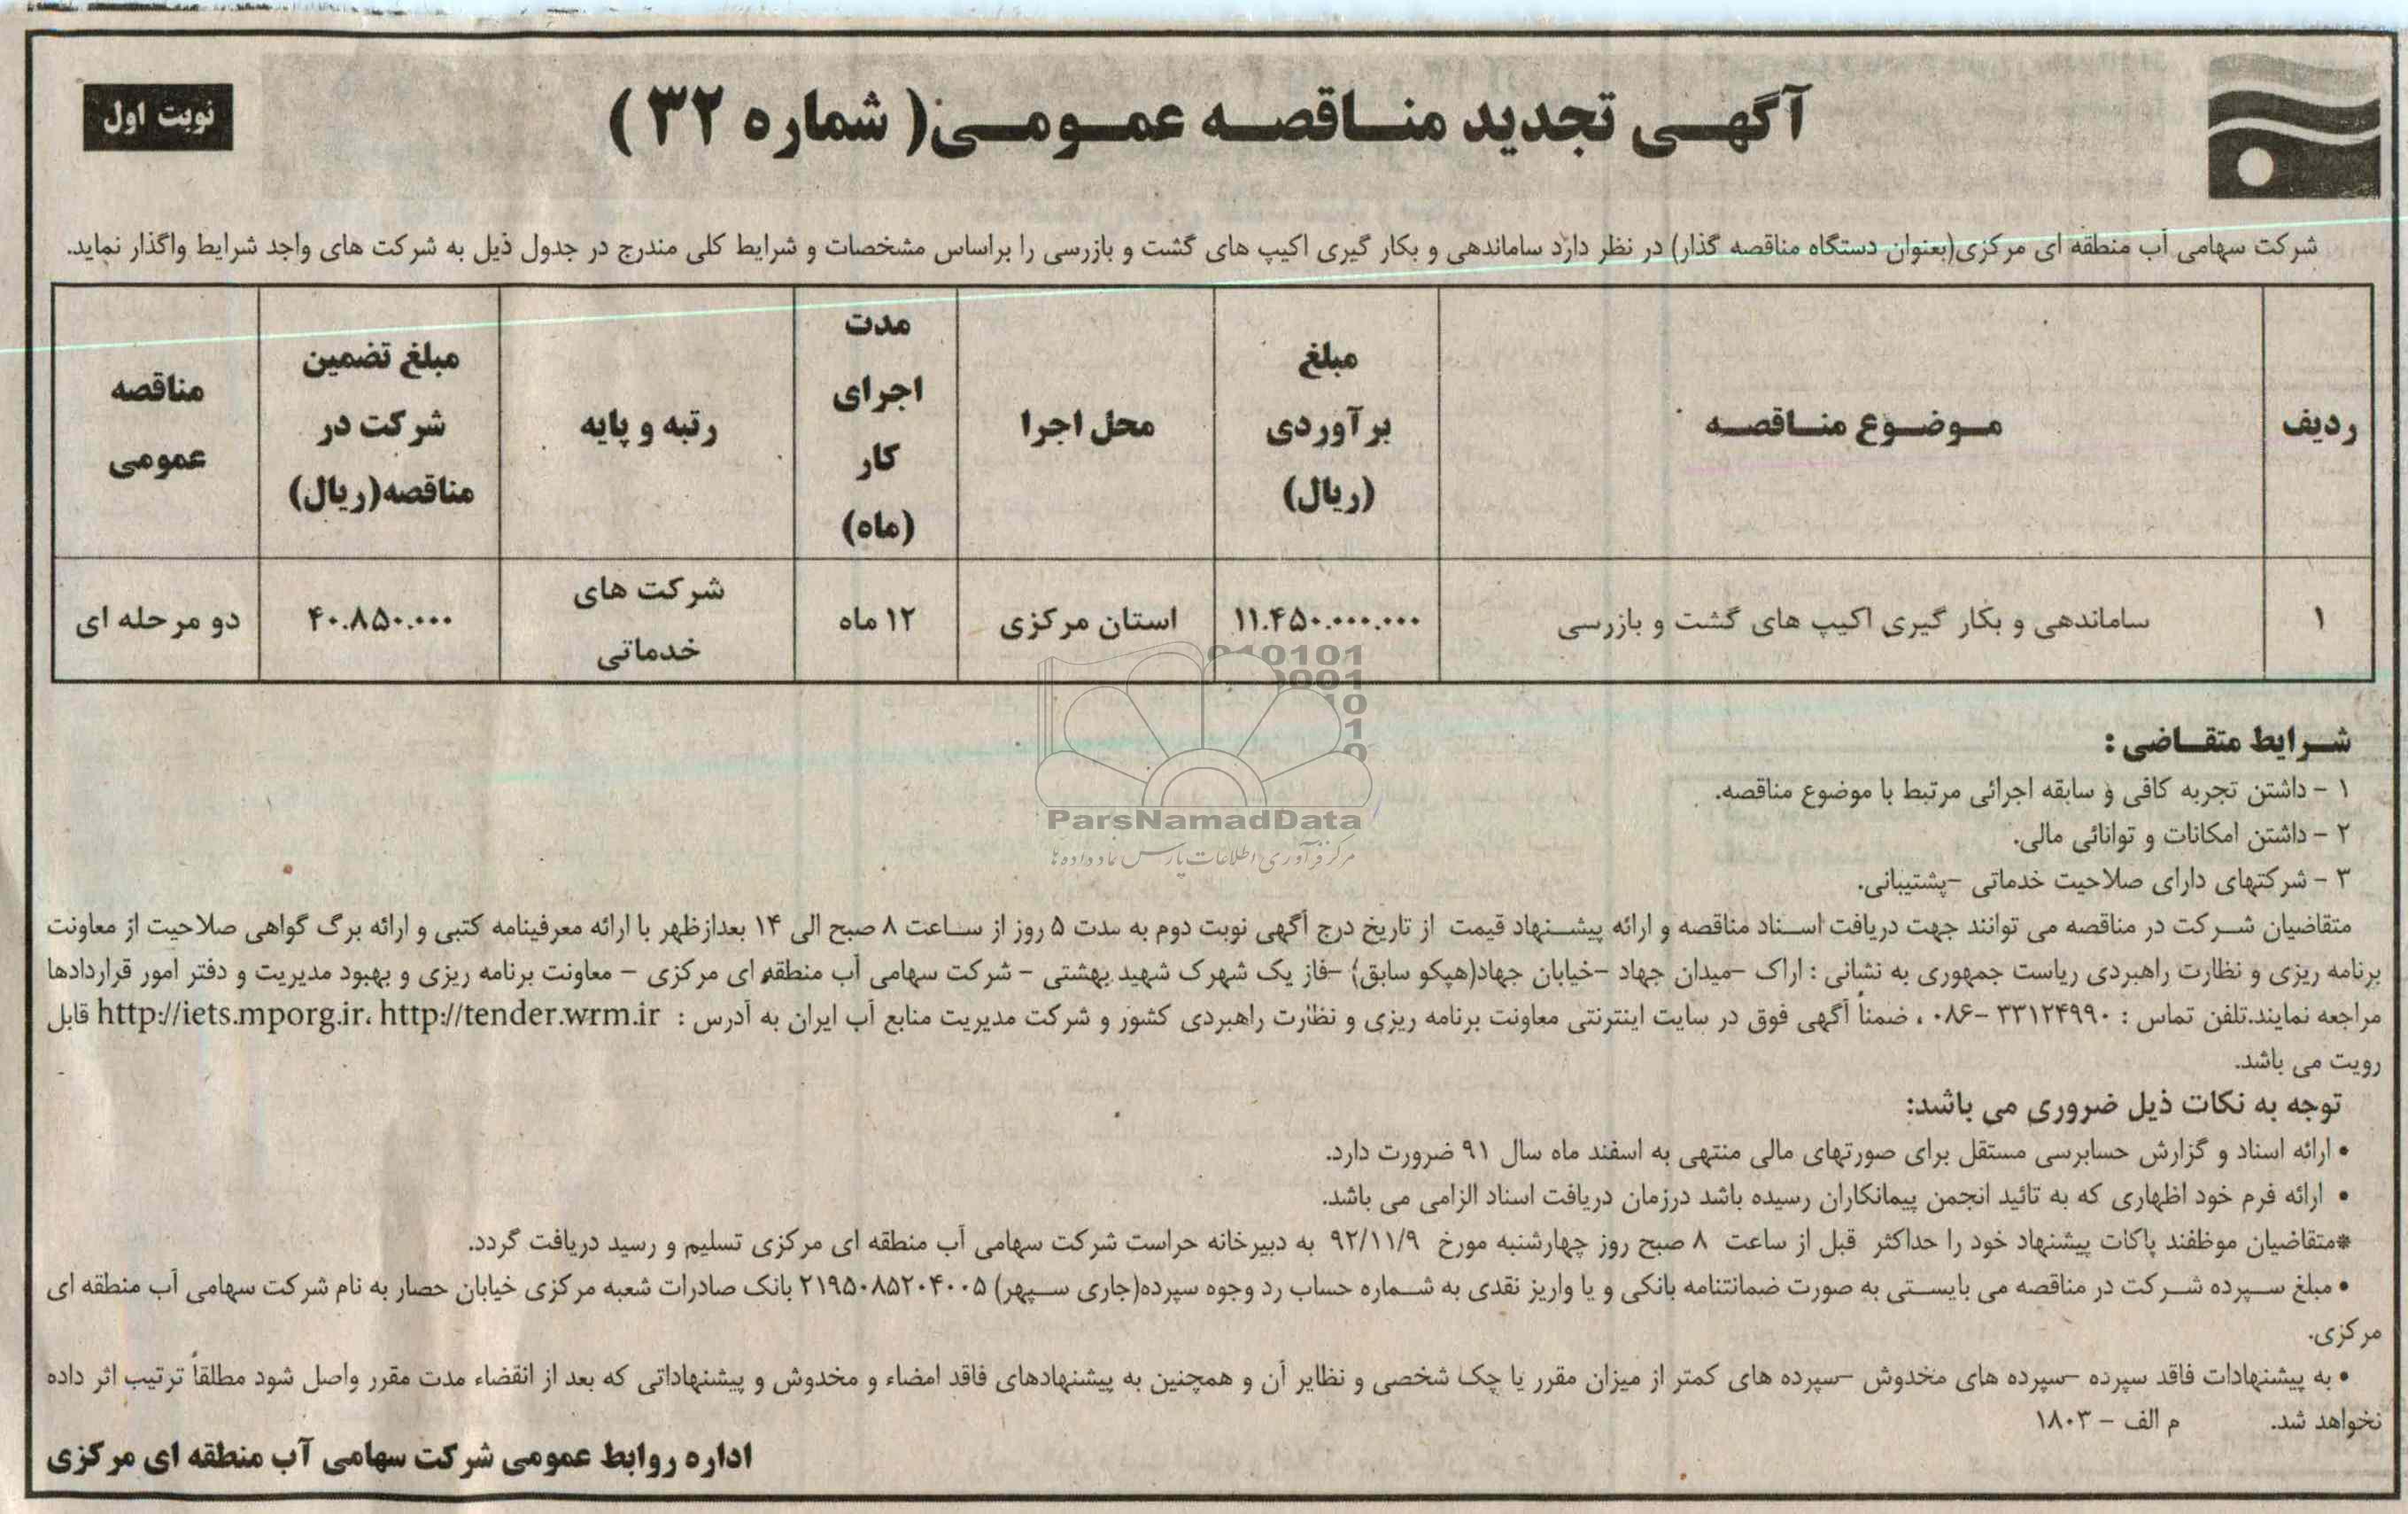 آگهی تجدید مناقصه عمومی( شماره ۳۲ )
نوبت اول
شرکت سهامی آب منطقه ای مرکزی(بعنوان دستگاه مناقصه گذار) در نظر دارد ساماندهی و بکار گیری اکیپ های گشت و بازرسی را براساس مشخصات و شرایط کلی مندرج در جدول ذیل به شرکت های واجد شرایط واگذار نماید.
ردیف
موضوع مناقصه
مبلغ
برآوردی
(ریال)
محل اجرا
مدت
اجرای
کار
(ماه)
رتبه و پایه
مبلغ تضمین
شرکت در
مناقصه(ریال)
مناقصه
عمومی
۱
ساماندهی و بکار گیری اکیپ های گشت و بازرسی
۱۱.۴۵۰.۰۰۰.۰۰۰
استان مرکزی
۱۲ ماه
شرکت های
خدماتی
۴۰.۸۵۰.۰۰۰
دو مرحله ای
شرایط متقاضی :
۱ - داشتن تجربه کافی و سابقه اجرائی مرتبط با موضوع مناقصه.
۲ - داشتن امکانات و توانائی مالی.
۳ - شرکتهای دارای صلاحیت خدماتی -پشتیبانی.
متقاضیان شرکت در مناقصه می توانند جهت دریافت اسناد مناقصه و ارائه پیشنهاد قیمت از تاریخ درج آگهی نوبت دوم به مدت ۵ روز از ساعت ۸ صبح الی ۱۴ بعدازظهر با ارائه معرفینامه کتبی و ارائه برگ گواهی صلاحیت از معاونت
برنامه ریزی و نظارت راهبردی ریاست جمهوری به نشانی : اراک -میدان جهاد -خیابان جهاد(هپکو سابق) -فاز یک شهرک شهید بهشتی - شرکت سهامی آب منطقه ای مرکزی - معاونت برنامه ریزی و بهبود مدیریت و دفتر امور قراردادها
مراجعه نمایند.تلفن تماس : ۳۳۱۲۴۹۹۰ -۰۸۶ ، ضمناً آگهی فوق در سایت اینترنتی معاونت برنامه ریزی و نظارت راهبردی کشور و شرکت مدیریت منابع آب ایران به آدرس : http://iets.mporg.ir، http://tender.wrm.ir قابل
رویت می باشد.
توجه به نکات ذیل ضروری می باشد:
• ارائه اسناد و گزارش حسابرسی مستقل برای صورتهای مالی منتهی به اسفند ماه سال ۹۱ ضرورت دارد.
• ارائه فرم خود اظهاری که به تائید انجمن پیمانکاران رسیده باشد درزمان دریافت اسناد الزامی می باشد.
*متقاضیان موظفند پاکات پیشنهاد خود را حداکثر قبل از ساعت ۸ صبح روز چهارشنبه مورخ ۹۲/۱۱/۹ به دبیرخانه حراست شرکت سهامی آب منطقه ای مرکزی تسلیم و رسید دریافت گردد.
• مبلغ سپرده شرکت در مناقصه می بایستی به صورت ضمانتنامه بانکی و یا واریز نقدی به شماره حساب رد وجوه سپرده(جاری سپهر) ۲۱۹۵۰۸۵۲۰۴۰۰۵ بانک صادرات شعبه مرکزی خیابان حصار به نام شرکت سهامی آب منطقه ای
مرکزی.
• به پیشنهادات فاقد سپرده -سپرده های مخدوش -سپرده های کمتر از میزان مقرر یا چک شخصی و نظایر آن و همچنین به پیشنهادهای فاقد امضاء و مخدوش و پیشنهاداتی که بعد از انقضاء مدت مقرر واصل شود مطلقاً ترتیب اثر داده
نخواهد شد. م الف - ۱۸۰۳
اداره روابط عمومی شرکت سهامی آب منطقه ای مرکزی
ParsNamadData
مرکز فرآوری اطلاعات پارس نماد داده ها